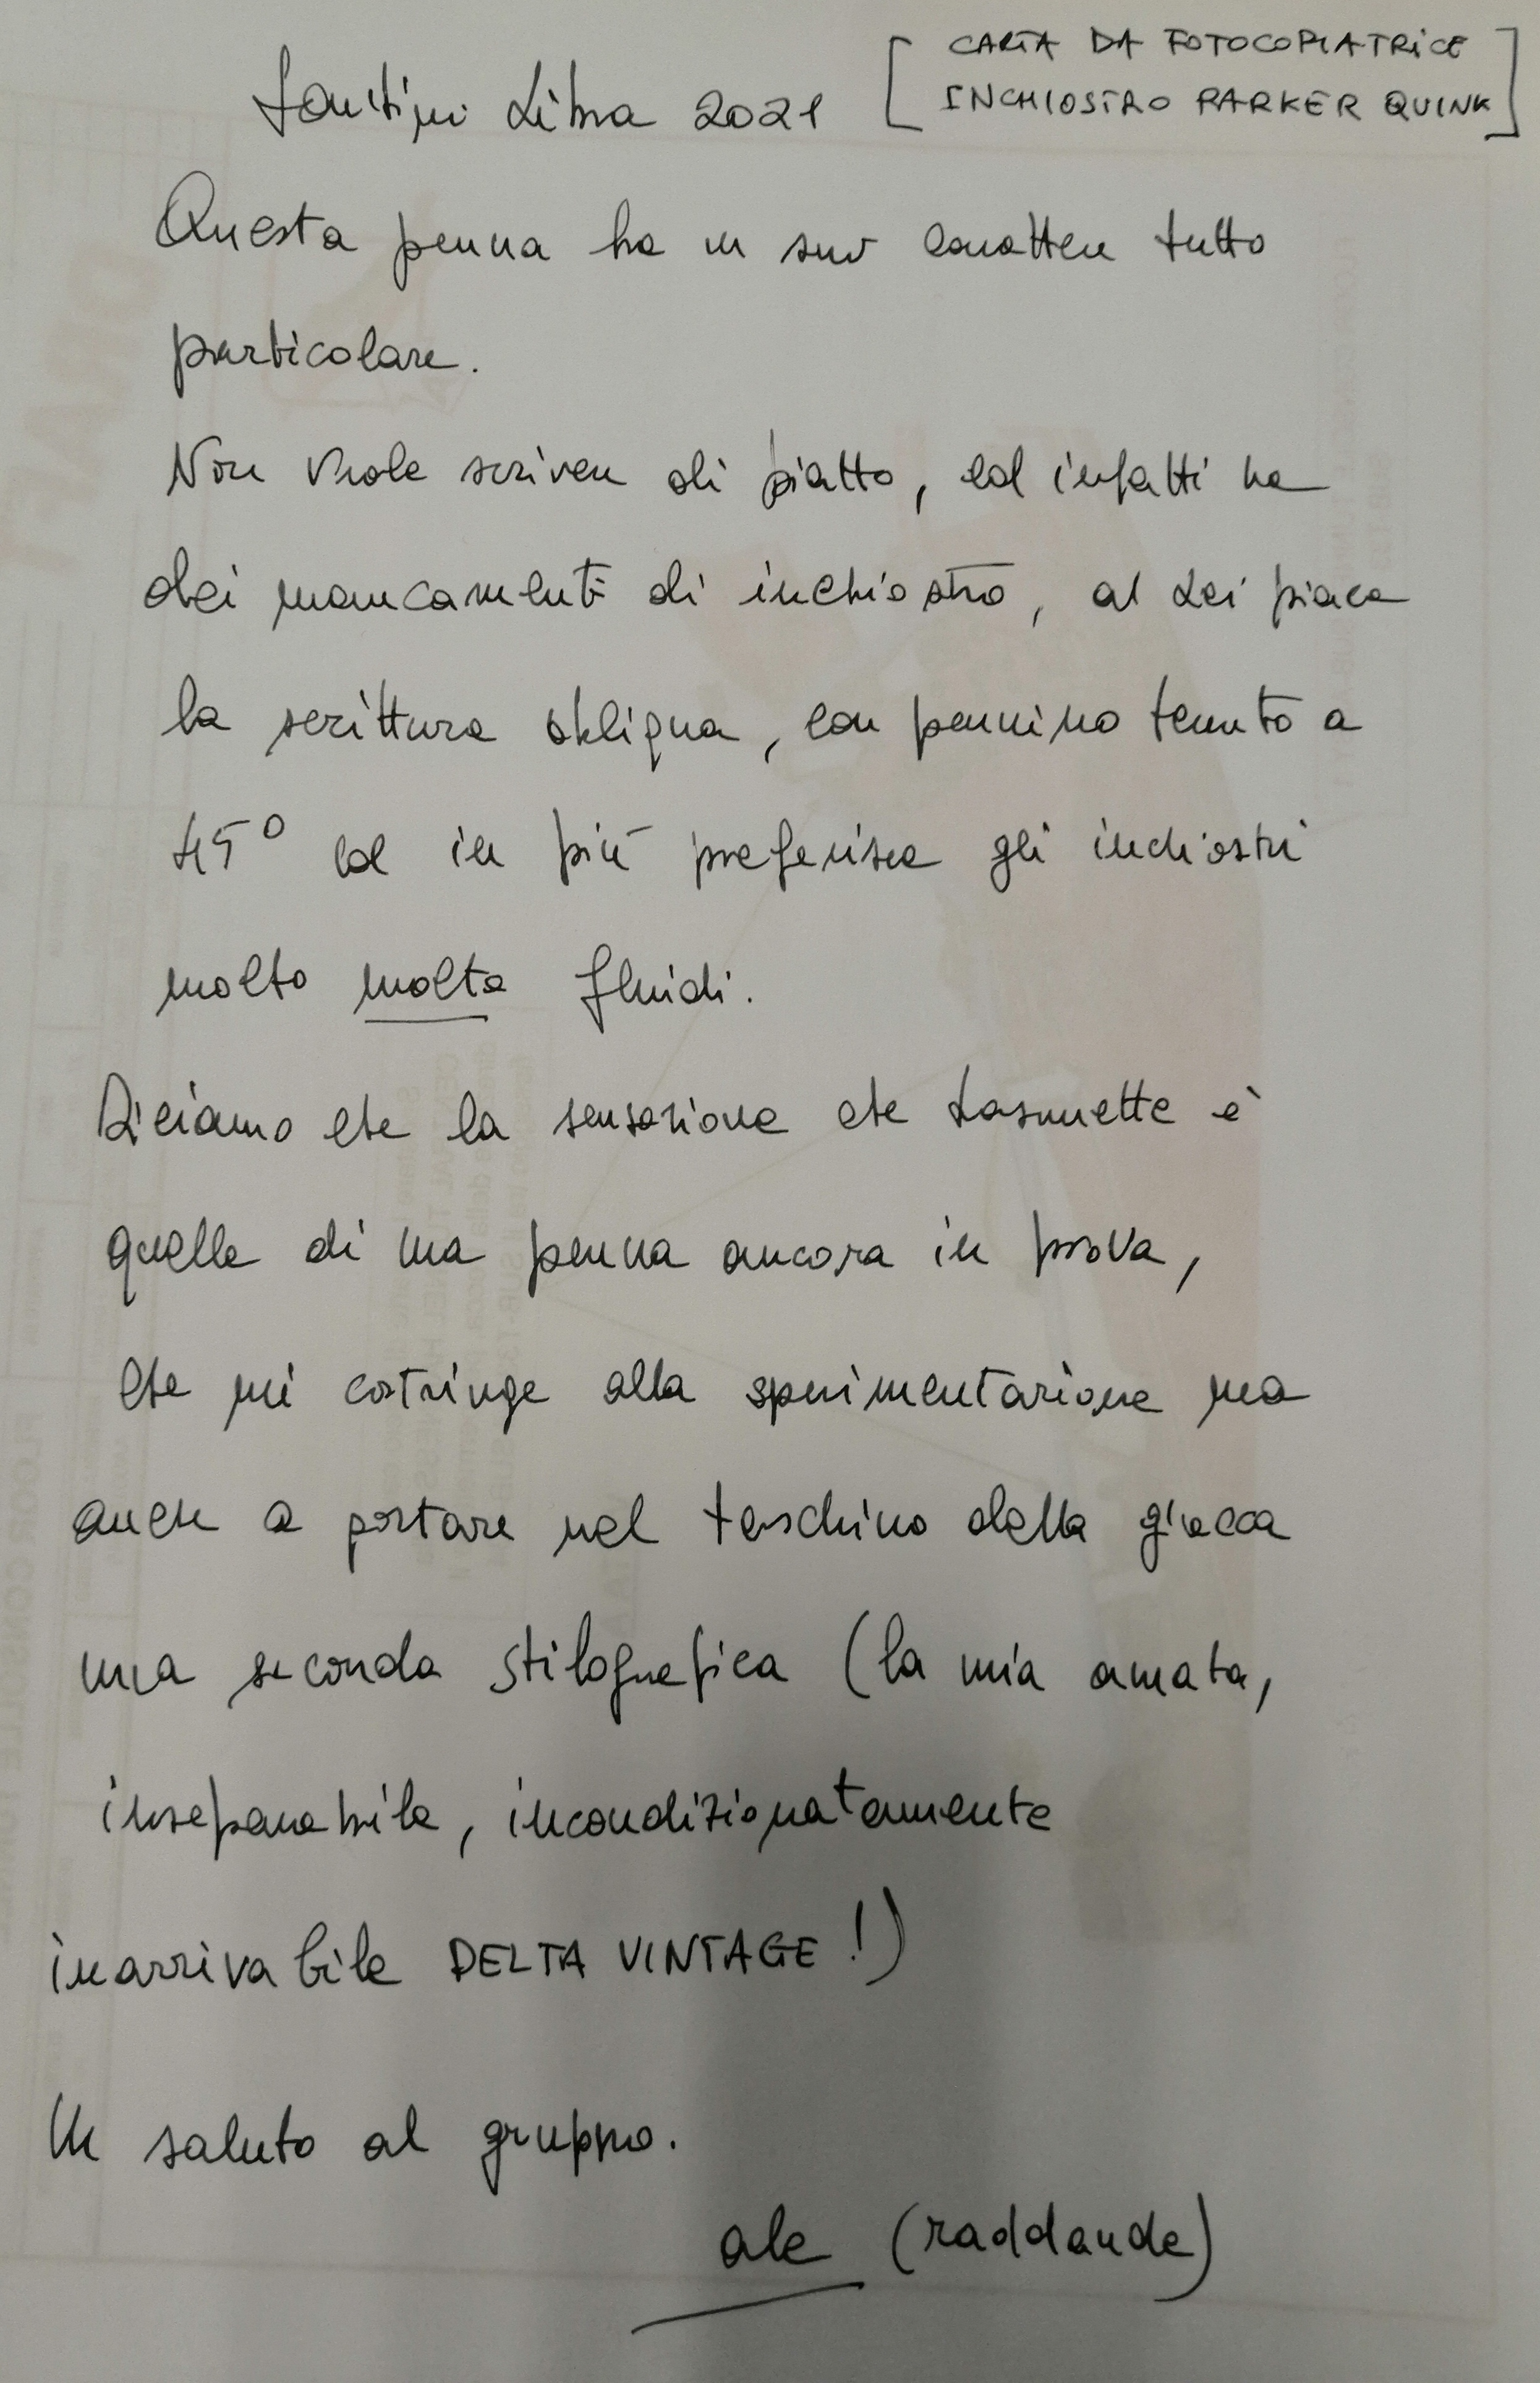 Santini Libra 2021 [CARTA DA FOTOCOPIATRICE
INCHIOSTRO PARKER QUINK]
Questa penna ha un suo carattere tutto
particolare.
Non vuole scrivere di piatto, ed infatti ha
dei mancamenti di inchiostro, a lei piace
la scrittura obliqua, con pennino tenuto a
45° ed in più preferisce gli inchiostri
molto molto fluidi.
Diciamo che la sensazione che trasmette è
quella di una penna ancora in prova,
che mi costringe alla sperimentazione ma
anche a portare nel taschino della giacca
una seconda stilografica (la mia amata,
inseparabile, incondizionatamente
inarrivabile DELTA VINTAGE!)
Un saluto al gruppo.
ale (raddaude)